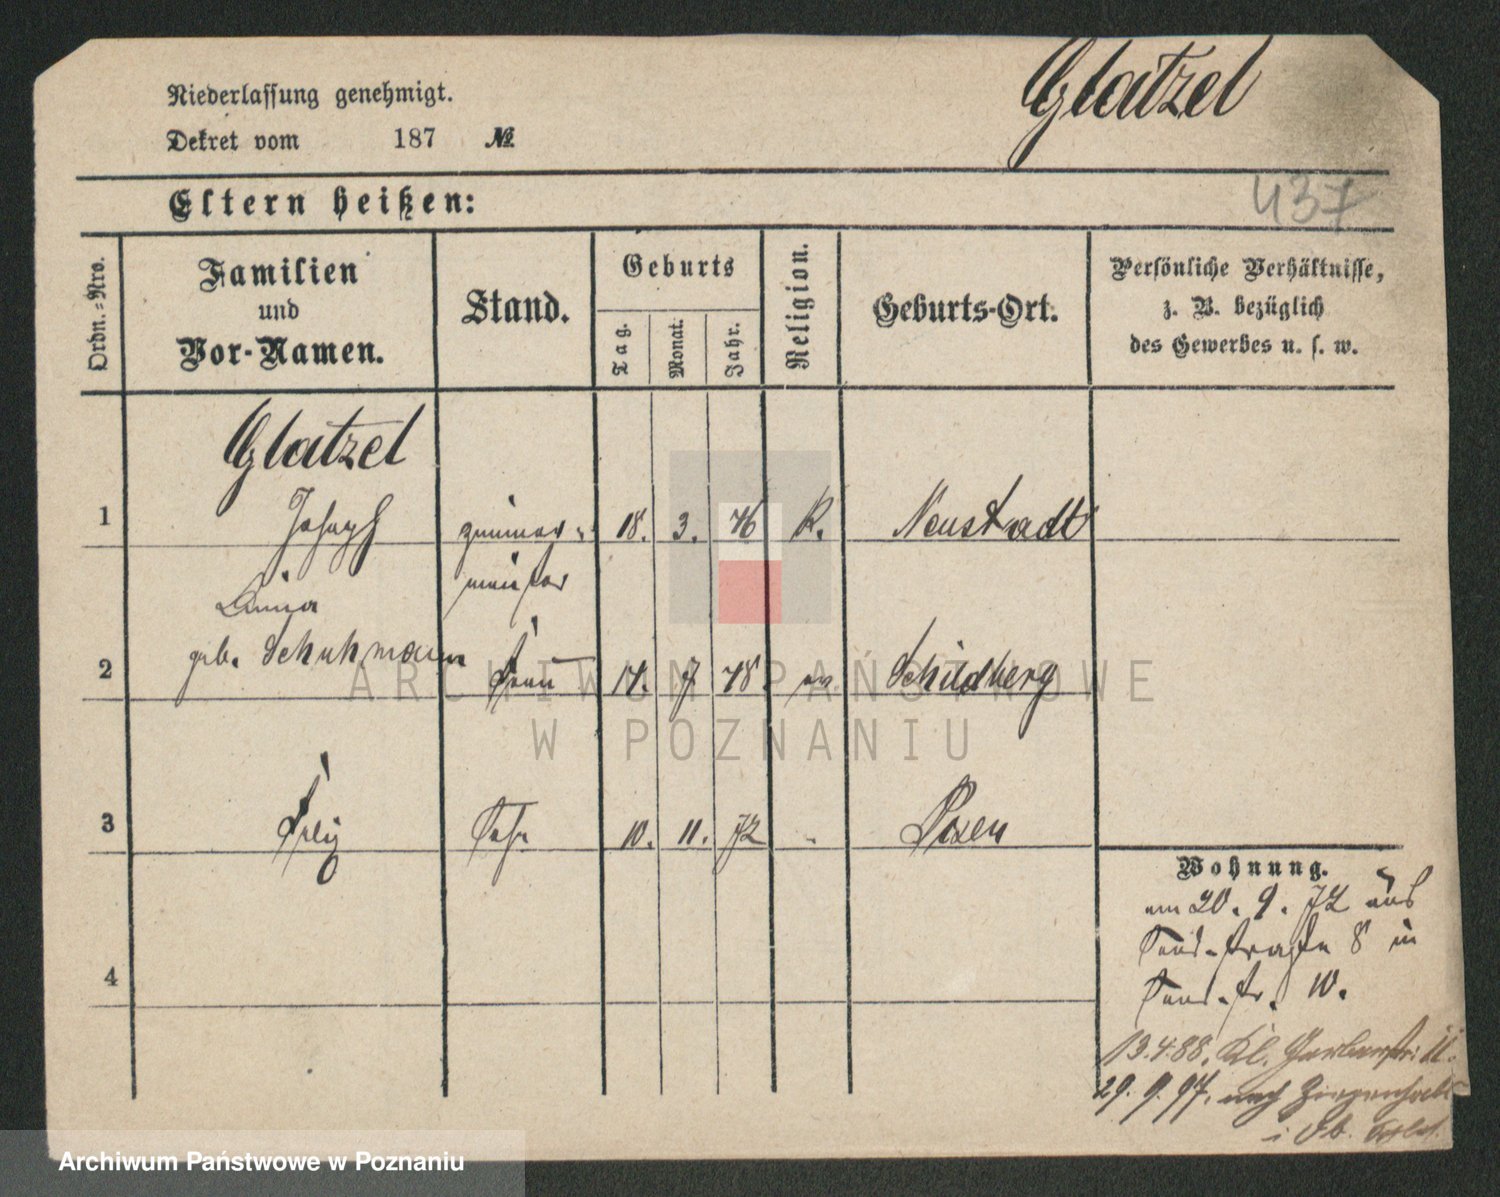 Glatzel
Niederlassung genehmigt.
Dekret vom 187 №
437
Eltern heißen:
Ordn.-Nro.
Familien
und
Vor-Namen.
Stand.
Geburts
Tag.
Monat.
Jahr.
Religion.
Geburts-Ort.
Persönliche Verhältnisse,
z. B. bezüglich
des Gewerbes u. s. w.
Glatzel
1 Joseph Zimmer- 18. 3. 46 K. Neustadt
meister
Anna
2 geb. Schuhmann Frau 14. 7 48. ev. Schildberg
3 Felix Sohn 10. 11. 72 Posen
Wohnung.
am 20. 9. 72 aus
Sandstraße 8 in
Sandstr. 10.
13.4.88. Kl. Gerberstr. 11.
29. 9. 97. nach
4
ARCHIWUM PAŃSTWOWE
W POZNANIU
Archiwum Państwowe w Poznaniu